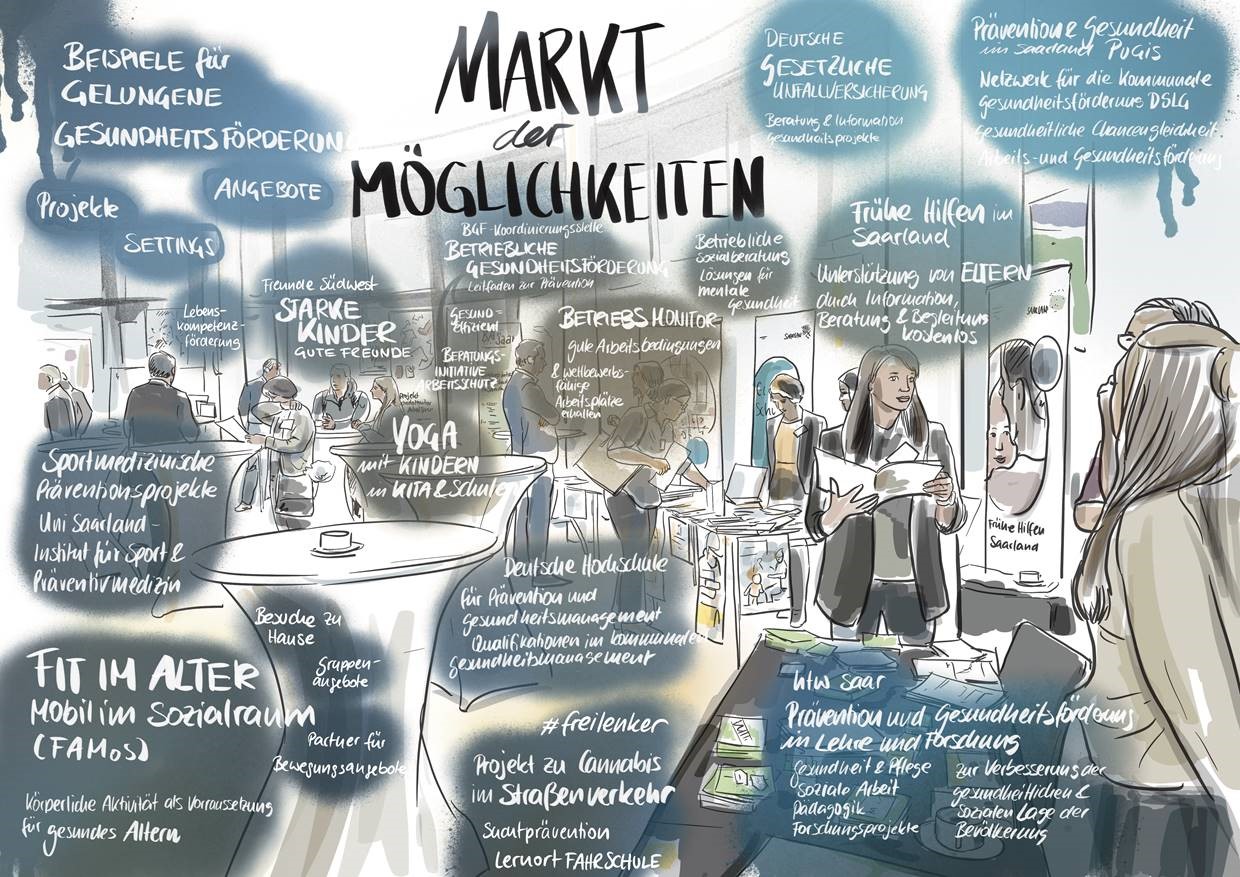 MARKT
der
MÖGLICHKEITEN
BEISPIELE für
GELUNGENE
GESUNDHEITSFÖRDERUNG
Projekte
ANGEBOTE
SETTINGS
DEUTSCHE
GESETZLICHE
UNFALLVERSICHERUNG
Beratung & Information
Gesundheitsprojekte
Prävention & Gesundheit
im Saarland PuGiS
Netzwerk für die Kommunale
Gesundheitsförderung DSLG
Gesundheitliche Chancengleichheit
Arbeits- und Gesundheitsförderung
Lebens-
kompetenz-
förderung
Freunde Südwest
STARKE
KINDER
GUTE FREUNDE
BGF-Koordinierungsstelle
BETRIEBLICHE
GESUNDHEITSFÖRDERUNG
Leitfaden zur Prävention
Gesund-
Effizient
BERATUNGS-
INITIATIVE
ARBEITSSCHUTZ
BETRIEBSMONITOR
gute Arbeitsbedingungen
& wettbewerbs-
fähige
Arbeitsplätze
erhalten
Betriebliche
Sozialberatung
Lösungen für
mentale
Gesundheit
Frühe Hilfen im
Saarland
Unterstützung von ELTERN
durch Information,
Beratung & Begleitung
kostenlos
YOGA
mit KINDERN
in KITA & Schulen
Frühe Hilfen
Saarland
Sportmedizinische
Präventionsprojekte
Uni Saarland -
Institut für Sport &
Präventivmedizin
FIT IM ALTER
Mobil im Sozialraum
(FAMoS)
Körperliche Aktivität als Vorraussetzung
für gesundes Altern
Besuche zu
Hause
Gruppen-
angebote
Partner für
Bewegungsangebote
Deutsche Hochschule
für Prävention und
Gesundheitsmanagement
Qualifikationen im kommunalen
Gesundheitsmanagement
#freilenker
Projekt zu Cannabis
im Straßenverkehr
Suchtprävention
Lernort FAHRSCHULE
htw saar
Prävention und Gesundheitsförderung
in Lehre und Forschung
Gesundheit & Pflege
Soziale Arbeit
Pädagogik
Forschungsprojekte
zur Verbesserung der
gesundheitlichen &
Sozialen Lage der
Bevölkerung